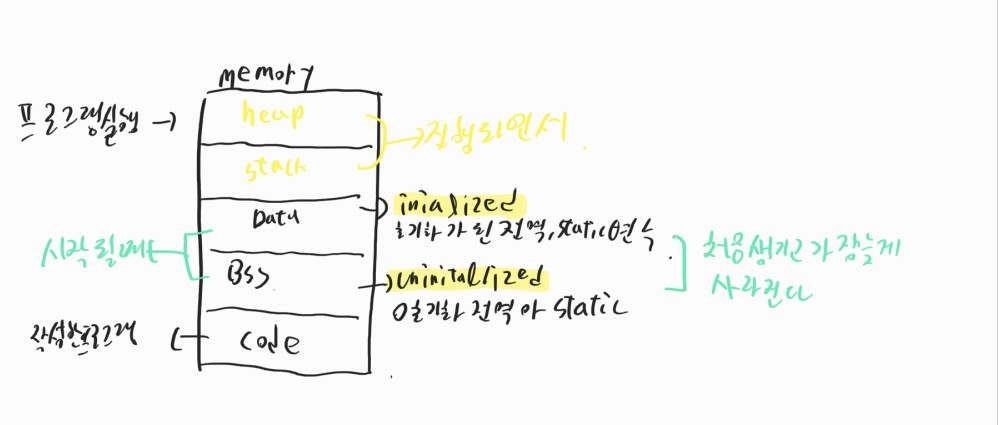 memory
프로그램실행 →
heap
stack
→ 진행되면서
Data
inialized
초기화 가 된 전역, static 변수
시작될때
BSS
uninitalized
0 초기화 전역 아 static
처음생기고 가장늦게
사라진다
작성한프로그램
code